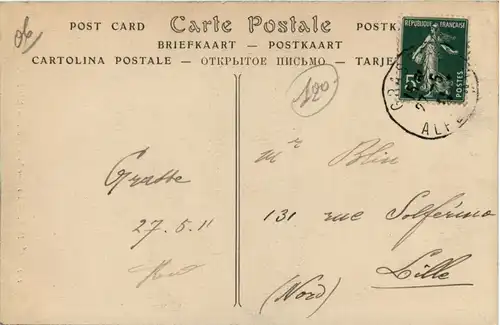 06
POST CARD Carte Postale POSTK
BRIEFKAART — POSTKAART
CARTOLINA POSTALE — ОТКРЫТОЕ ПИСЬМО — TARJE
REPUBLIQUE FRANÇAISE
5
POSTES
ALP
120
Grasse
27.5.11
Mr Blin
131 rue Solférino
Lille
(Nord)